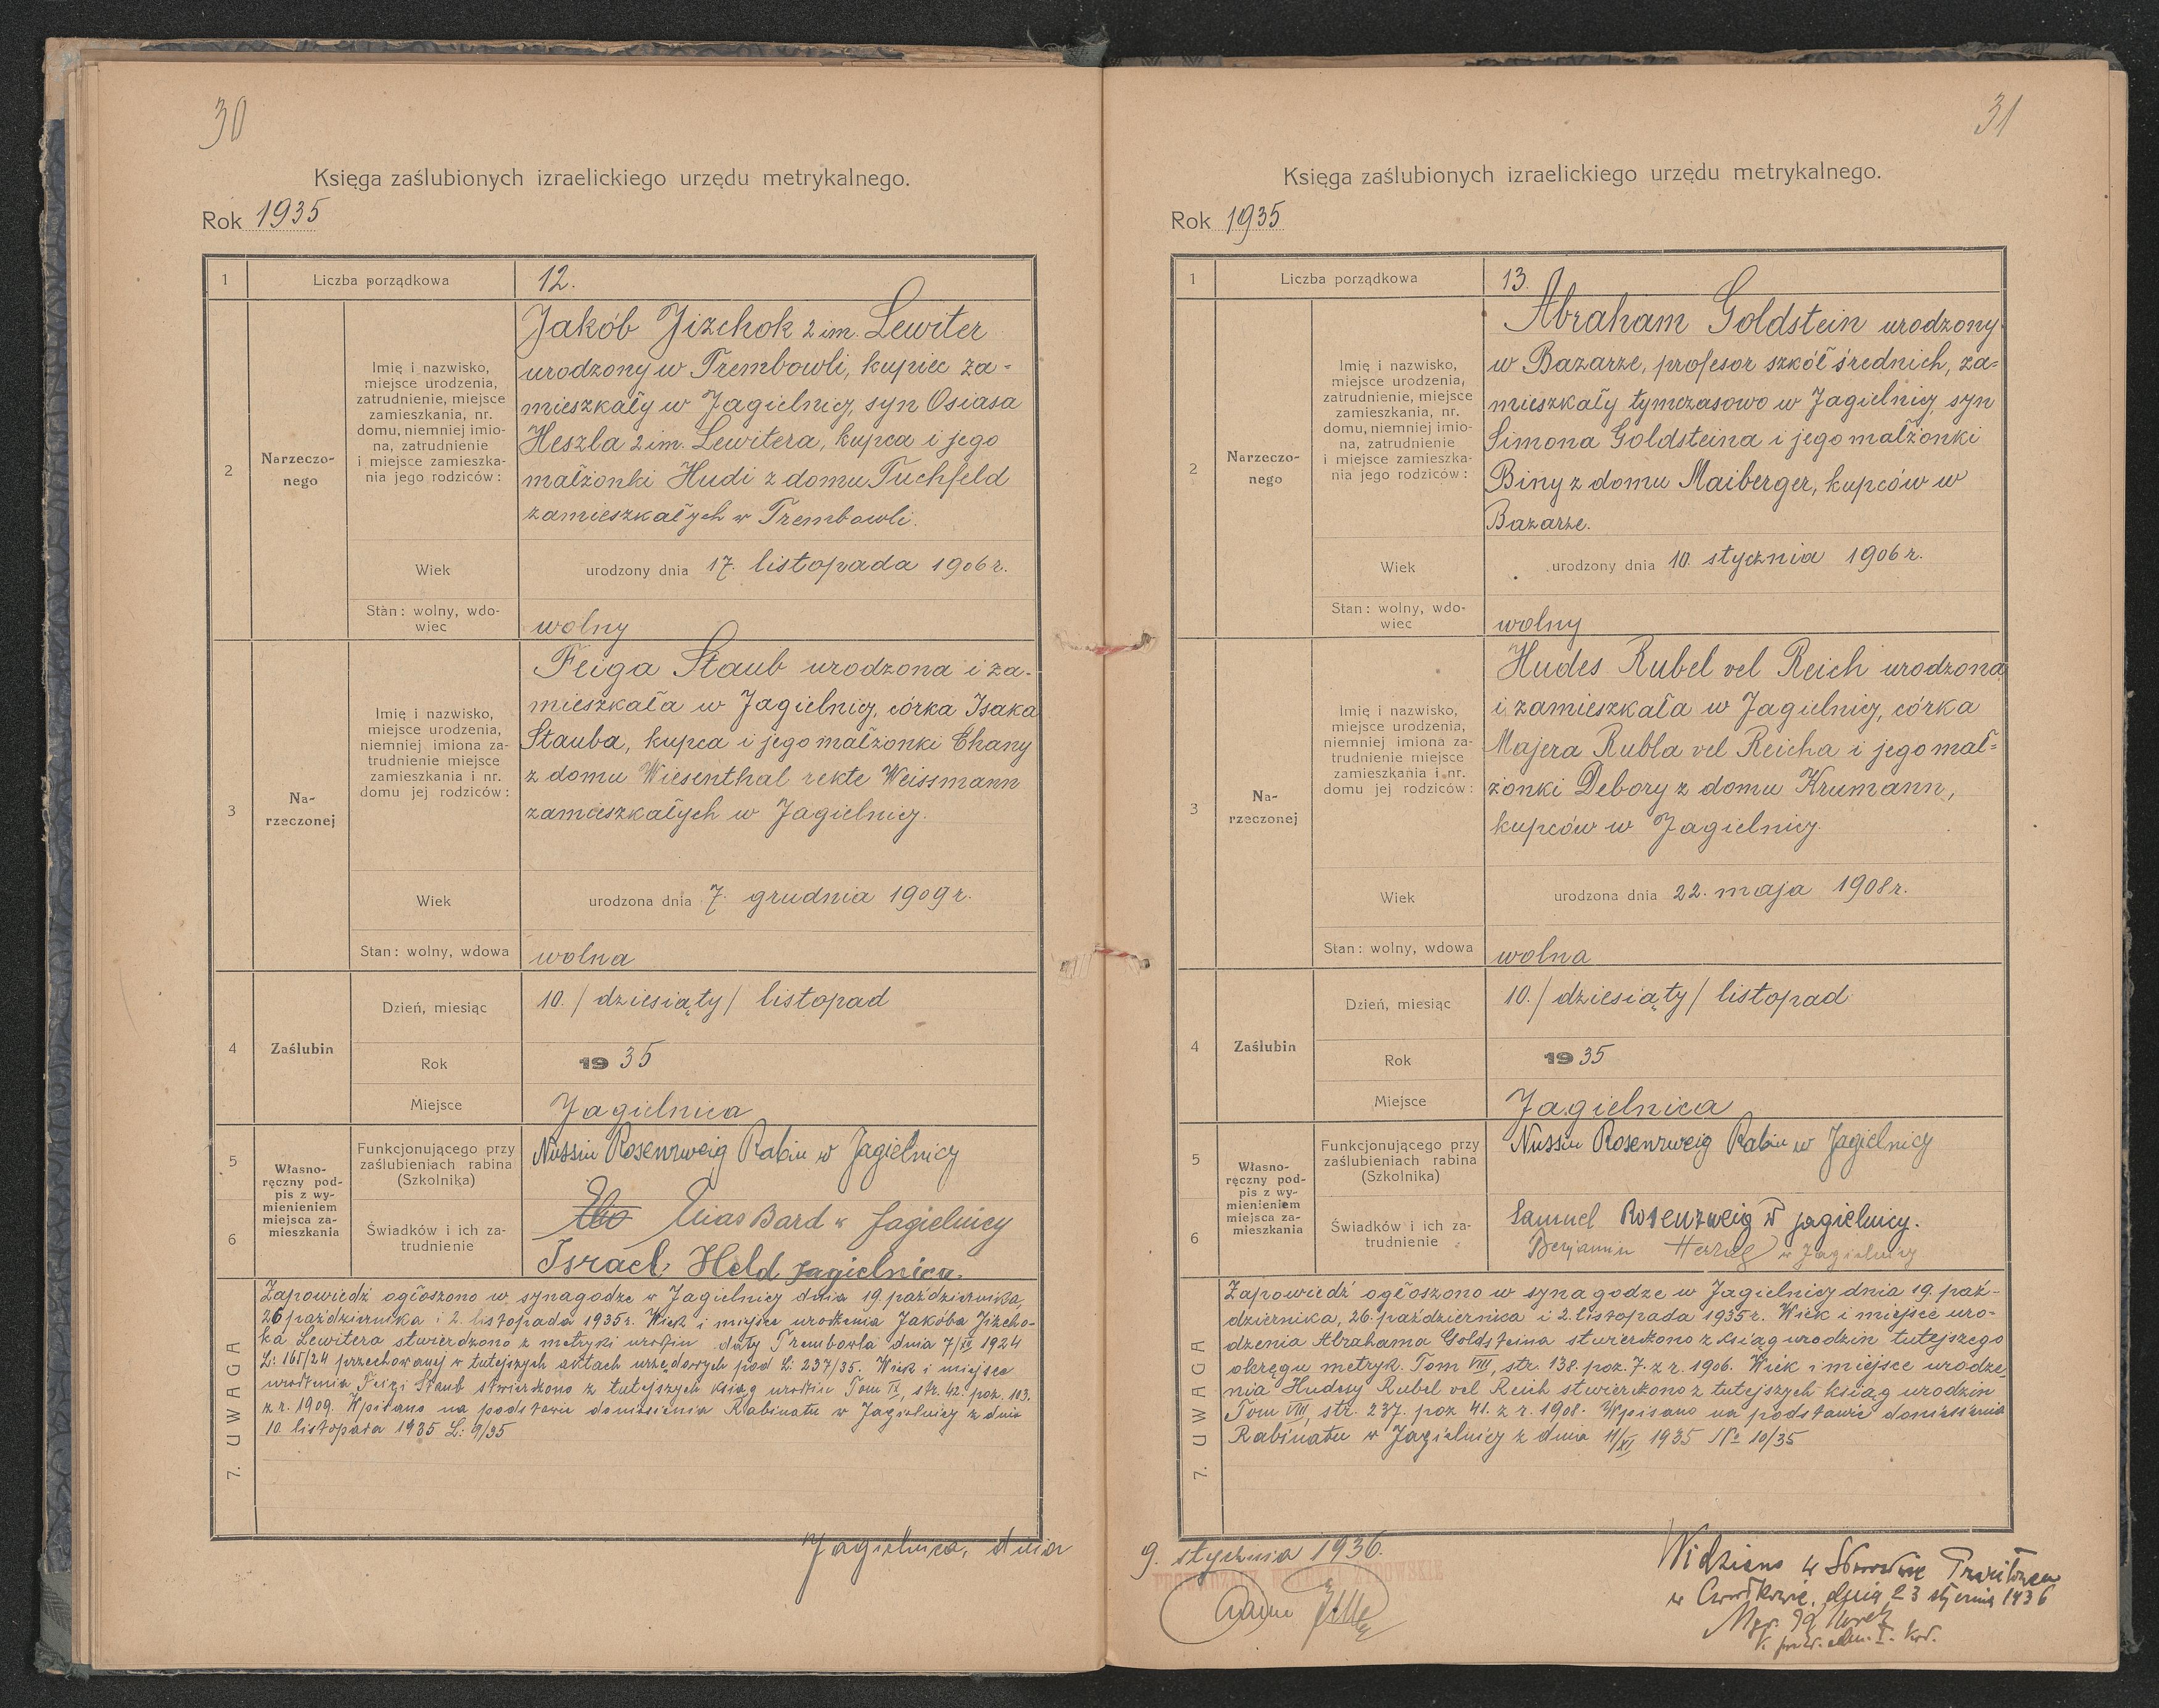 30
Księga zaślubionych izraelickiego urzędu metrykalnego.
Rok 1935
1
Liczba porządkowa
12.
2
Narzeczo-
nego
Imię i nazwisko,
miejsce urodzenia,
zatrudnienie, miejsce
zamieszkania, nr.
domu, niemniej imio-
na, zatrudnienie
i miejsce zamieszka-
nia jego rodziców:
Jakób Jizchok 2 im. Lewiter
urodzony w Trembowli, kupiec za-
mieszkały w Jagielnicy, syn Osiasa
Heszla 2 im. Lewitera, kupca i jego
małżonki Hudi z domu Tuchfeld
zamieszkałych w Trembowli.
Wiek
urodzony dnia 17. listopada 1906 r.
Stan: wolny, wdo-
wiec
wolny
3
Na-
rzeczonej
Imię i nazwisko,
miejsce urodzenia,
niemniej imiona za-
trudnienie miejsce
zamieszkania i nr.
domu jej rodziców:
Feiga Staub urodzona i za-
mieszkała w Jagielnicy, córka Isaka
Stauba, kupca i jego małżonki Chany
z domu Wiesenthal rekte Weissmann
zamieszkałych w Jagielnicy.
Wiek
urodzona dnia 7. grudnia 1909 r.
Stan: wolny, wdowa
wolna
4
Zaślubin
Dzień, miesiąc
10. / dziesiąty / listopad
Rok
19 35
Miejsce
Jagielnica
5
6
Własno-
ręczny pod-
pis z wy-
mienieniem
miejsca za-
mieszkania
Funkcjonującego przy
zaślubieniach rabina
(Szkolnika)
Nussin Rosenzweig Rabin w Jagielnicy
Świadków i ich za-
trudnienie
Elias Bard w Jagielnicy
Israel Held Jagielnica.
7. UWAGA
Zapowiedź ogłoszono w synagodze w Jagielnicy dnia 19. października,
26 października i 2. listopada 1935 r. Wiek i miejsce urodzenia Jakóba Jizcho-
ka Lewitera stwierdzono z metryki urodzin daty Trembowla dnia 7/IX 1924
L: 165/24 przechowanej w tutejszych aktach urzędowych pod L: 237/35. Wiek i miejsce
urodzenia Feigi Staub stwierdzono z tutejszych ksiąg urodzin Tom IX, str. 42. poz. 103.
z r. 1909. Wpisano na podstawie doniesienia Rabinatu w Jagielnicy z dnia
10. listopada 1935 L: 9/35
Jagielnica, dnia
31
Księga zaślubionych izraelickiego urzędu metrykalnego.
Rok 1935
1
Liczba porządkowa
13.
2
Narzeczo-
nego
Imię i nazwisko,
miejsce urodzenia,
zatrudnienie, miejsce
zamieszkania, nr.
domu, niemniej imio-
na, zatrudnienie
i miejsce zamieszka-
nia jego rodziców:
Abraham Goldstein urodzony
w Bazarze, profesor szkół średnich, za-
mieszkały tymczasowo w Jagielnicy, syn
Simona Goldsteina i jego małżonki
Biny z domu Maiberger, kupców w
Bazarze.
Wiek
urodzony dnia 10. stycznia 1906 r.
Stan: wolny, wdo-
wiec
wolny
3
Na-
rzeczonej
Imię i nazwisko,
miejsce urodzenia,
niemniej imiona za-
trudnienie miejsce
zamieszkania i nr.
domu jej rodziców:
Hudes Rubel vel Reich urodzona
i zamieszkała w Jagielnicy, córka
Majera Rubla vel Reicha i jego mał-
żonki Debory z domu Krumann,
kupców w Jagielnicy.
Wiek
urodzona dnia 22. maja 1908 r.
Stan: wolny, wdowa
wolna
4
Zaślubin
Dzień, miesiąc
10. / dziesiąty / listopad
Rok
19 35
Miejsce
Jagielnica
5
6
Własno-
ręczny pod-
pis z wy-
mienieniem
miejsca za-
mieszkania
Funkcjonującego przy
zaślubieniach rabina
(Szkolnika)
Nussin Rosenzweig Rabin w Jagielnicy
Świadków i ich za-
trudnienie
Samuel Rosenzweig w Jagielnicy.
Benjamin w Jagielnicy
7. UWAGA
Zapowiedź ogłoszono w synagodze w Jagielnicy dnia 19. paź-
dziernika, 26. października i 2. listopada 1935 r. Wiek i miejsce uro-
dzenia Abrahama Goldsteina stwierdzono z ksiąg urodzin tutejszego
okręgu metryk. Tom VIII, str. 138. poz. 7. z r. 1906. Wiek i miejsce urodze-
nia Hudesy Rubel vel Reich stwierdzono z tutejszych ksiąg urodzin
Tom VIII, str. 237. poz 41. z r. 1908. Wpisano na podstawie doniesienia
Rabinatu w Jagielnicy z dnia 11/XI 1935 No 10/35
9. stycznia 1936.
Widziano w Starostwie
w Czortkowie, dnia 23 stycznia 1936
Mgr.